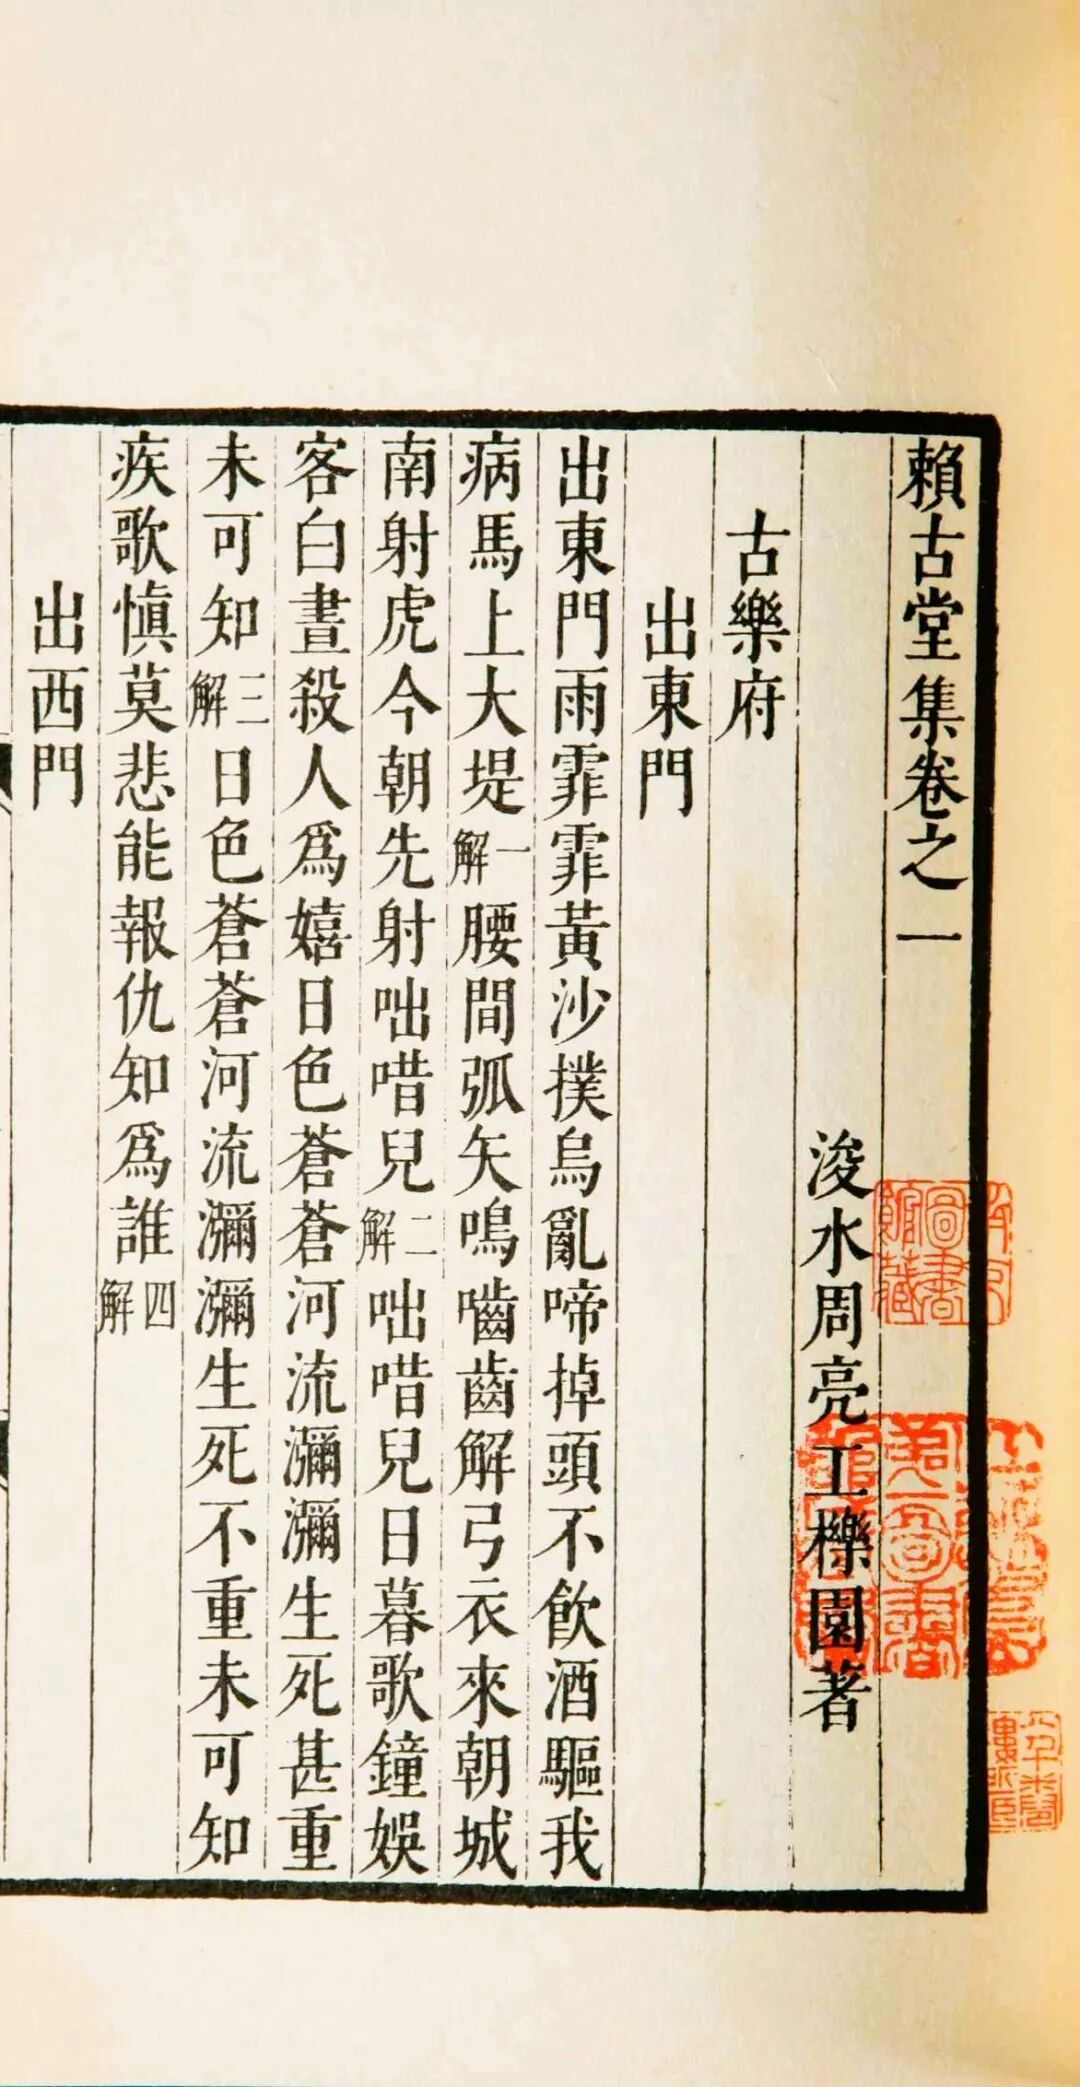 賴古堂集卷之一
浚水周亮工櫟園著
古樂府
出東門
出東門雨霏霏黃沙撲烏亂啼掉頭不飲酒驅我
病馬上大堤一解腰間弧矢鳴嚙齒解弓衣來朝城
南射虎今朝先射咄唶兒二解咄唶兒日暮歌鐘娛
客白晝殺人為嬉日色蒼蒼河流瀰瀰生死甚重
未可知三解日色蒼蒼河流瀰瀰生死不重未可知
疾歌慎莫悲能報仇知為誰四解
出西門